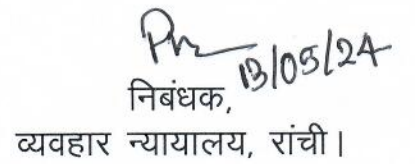 13/05/24
निबंधक,
व्यवहार न्यायालय, रांची।